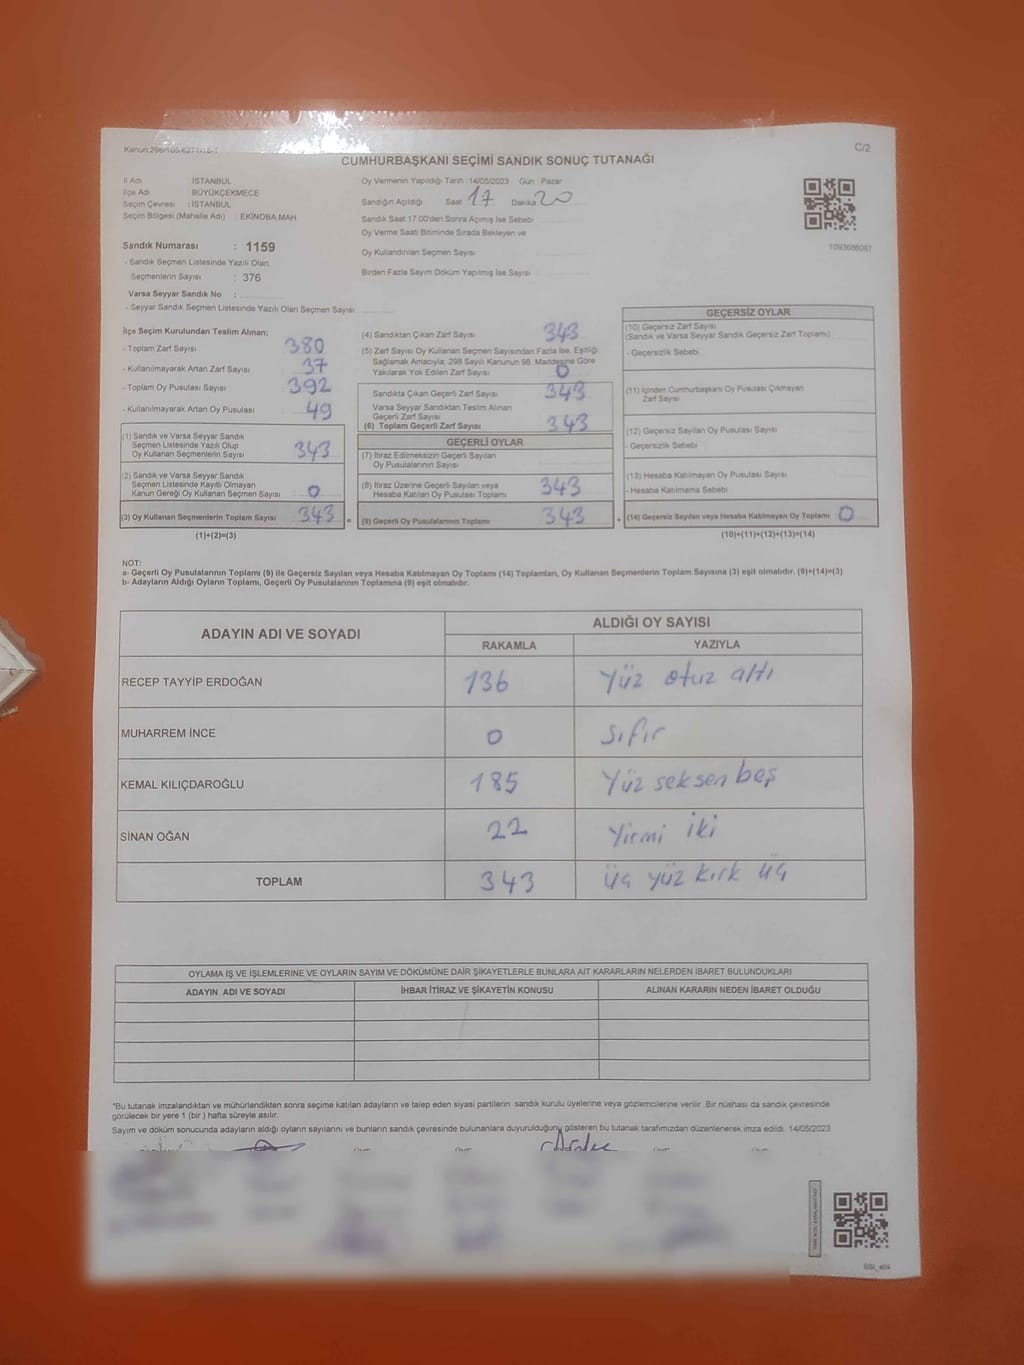 Kanun:298/105,6271/18-1
C/2
CUMHURBAŞKANI SEÇİMİ SANDIK SONUÇ TUTANAĞI
İl Adı : İSTANBUL
İlçe Adı : BÜYÜKÇEKMECE
Seçim Çevresi : İSTANBUL
Seçim Bölgesi (Mahalle Adı) : EKİNOBA MAH.
Sandık Numarası : 1159
- Sandık Seçmen Listesinde Yazılı Olan
Seçmenlerin Sayısı : 376
Varsa Seyyar Sandık No :
- Seyyar Sandık Seçmen Listesinde Yazılı Olan Seçmen Sayısı
Oy Vermenin Yapıldığı Tarih : 14/05/2023 Gün : Pazar
Sandığın Açıldığı Saat 17 Dakika 20
Sandık Saat 17:00'den Sonra Açımış İse Sebebi
Oy Verme Saati Bitiminde Sırada Bekleyen ve
Oy Kullandırılan Seçmen Sayısı
Birden Fazla Sayım Döküm Yapılmış İse Sayısı
1093686087
İlçe Seçim Kurulundan Teslim Alınan;
- Toplam Zarf Sayısı 380
- Kullanılmayarak Artan Zarf Sayısı 37
- Toplam Oy Pusulası Sayısı 392
- Kullanılmayarak Artan Oy Pusulası 49
(1) Sandık ve Varsa Seyyar Sandık
Seçmen Listesinde Yazılı Olup
Oy Kullanan Seçmenlerin Sayısı 343
(2) Sandık ve Varsa Seyyar Sandık
Seçmen Listesinde Kayıtlı Olmayan
Kanun Gereği Oy Kullanan Seçmen Sayısı 0
(3) Oy Kullanan Seçmenlerin Toplam Sayısı 343 =
(1)+(2)=(3)
(4) Sandıktan Çıkan Zarf Sayısı 343
(5) Zarf Sayısı Oy Kullanan Seçmen Sayısından Fazla İse, Eşitliği
Sağlamak Amacıyla; 298 Sayılı Kanunun 98. Maddesine Göre
Yakılarak Yok Edilen Zarf Sayısı 0
Sandıkta Çıkan Geçerli Zarf Sayısı 343
Varsa Seyyar Sandıktan Teslim Alınan
Geçerli Zarf Sayısı
(6) Toplam Geçerli Zarf Sayısı 343
GEÇERLİ OYLAR
(7) İtiraz Edilmeksizin Geçerli Sayılan
Oy Pusulalarının Sayısı
(8) İtiraz Üzerine Geçerli Sayılan veya
Hesaba Katılan Oy Pusulası Toplamı 343
(9) Geçerli Oy Pusulalarının Toplamı 343 +
GEÇERSİZ OYLAR
(10) Geçersiz Zarf Sayısı
(Sandık ve Varsa Seyyar Sandık Geçersiz Zarf Toplamı)
- Geçersizlik Sebebi
(11) İçinden Cumhurbaşkanı Oy Pusulası Çıkmayan
Zarf Sayısı
(12) Geçersiz Sayılan Oy Pusulası Sayısı
- Geçersizlik Sebebi
(13) Hesaba Katılmayan Oy Pusulası Sayısı
- Hesaba Katılmama Sebebi
(14) Geçersiz Sayılan veya Hesaba Katılmayan Oy Toplamı 0
(10)+(11)+(12)+(13)=(14)
NOT:
a- Geçerli Oy Pusulalarının Toplamı (9) ile Geçersiz Sayılan veya Hesaba Katılmayan Oy Toplamı (14) Toplamları, Oy Kullanan Seçmenlerin Toplam Sayısına (3) eşit olmalıdır. (9)+(14)=(3)
b- Adayların Aldığı Oyların Toplamı, Geçerli Oy Pusulalarının Toplamına (9) eşit olmalıdır.
ADAYIN ADI VE SOYADI
ALDIĞI OY SAYISI
RAKAMLA YAZIYLA
RECEP TAYYİP ERDOĞAN 136 Yüz otuz altı
MUHARREM İNCE 0 Sıfır
KEMAL KILIÇDAROĞLU 185 Yüz seksen beş
SİNAN OĞAN 22 Yirmi iki
TOPLAM 343 Üç yüz kırk üç
OYLAMA İŞ VE İŞLEMLERİNE VE OYLARIN SAYIM VE DÖKÜMÜNE DAİR ŞİKAYETLERLE BUNLARA AİT KARARLARIN NELERDEN İBARET BULUNDUKLARI
ADAYIN ADI VE SOYADI İHBAR İTİRAZ VE ŞİKAYETİN KONUSU ALINAN KARARIN NEDEN İBARET OLDUĞU
*Bu tutanak imzalandıktan ve mühürlendikten sonra seçime katılan adayların ve talep eden siyasi partilerin sandık kurulu üyelerine veya gözlemcilerine verilir. Bir nüshası da sandık çevresinde
görülecek bir yere 1 (bir) hafta süreyle asılır.
Sayım ve döküm sonucunda adayların aldığı oyların sayılarını ve bunların sandık çevresinde bulunanlara duyurulduğunu gösteren bu tutanak tarafımızdan düzenlenerek imza edildi. 14/05/2023